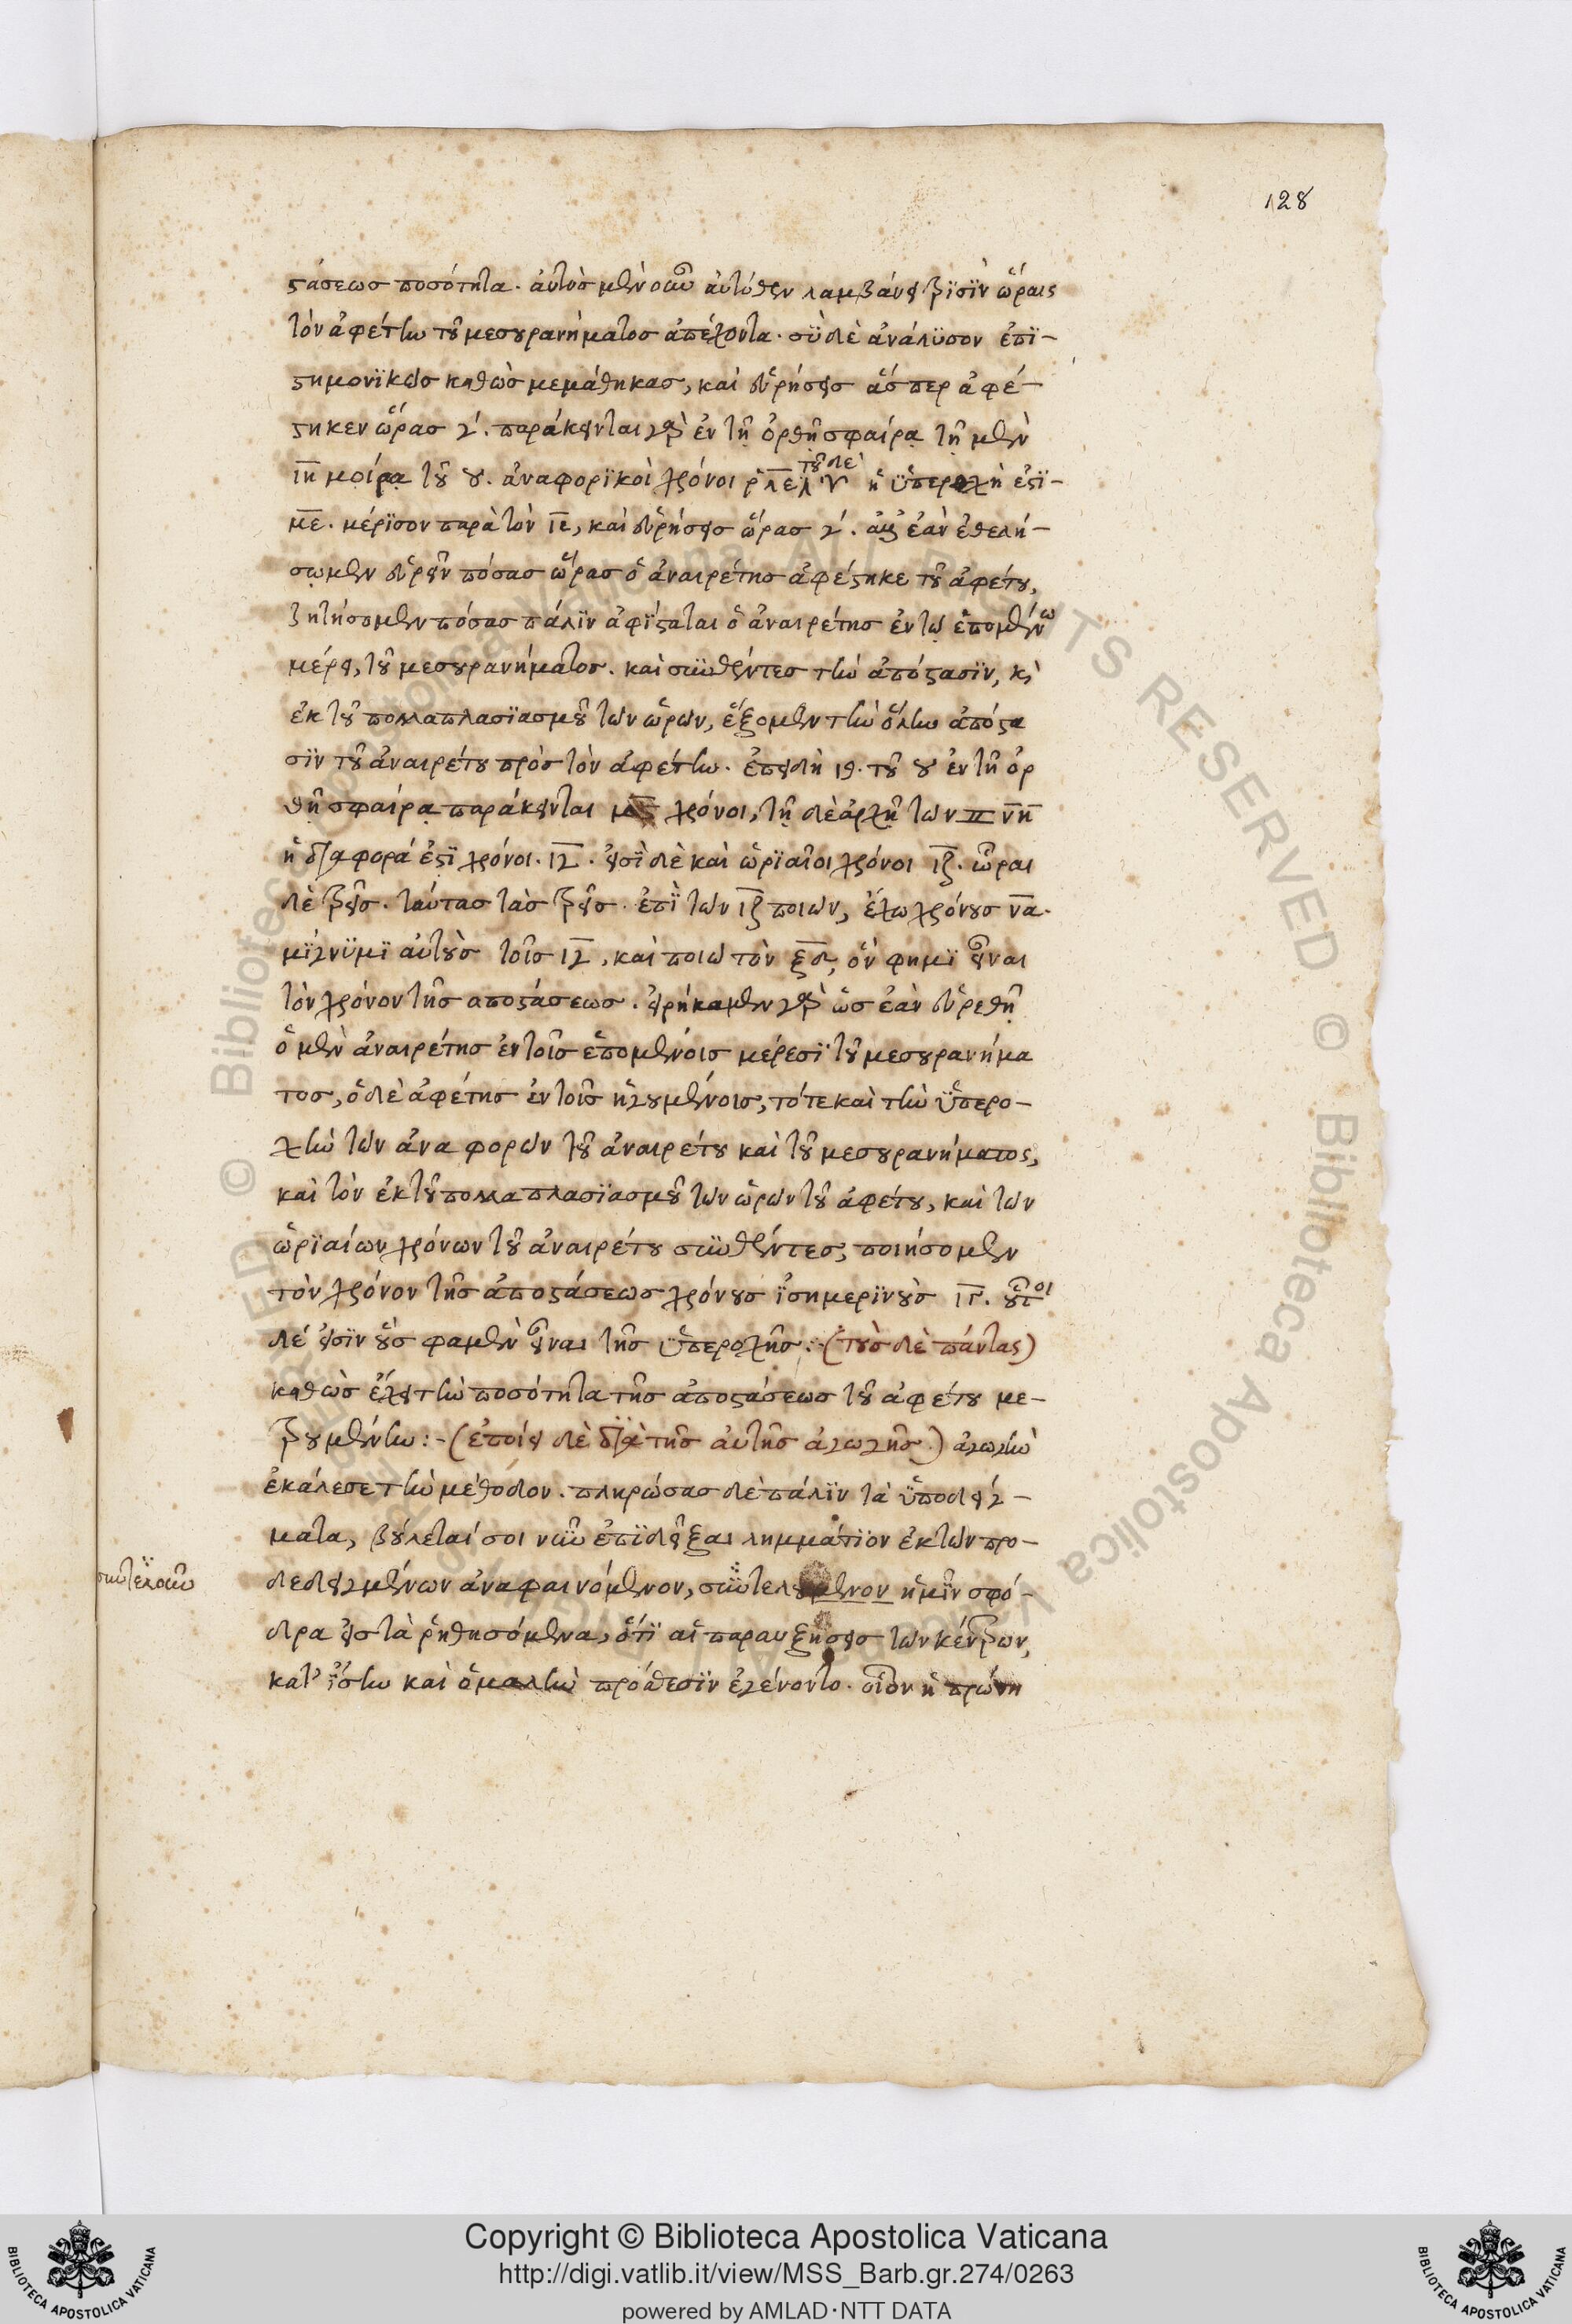 128
στάσεως ποσότητα. αὐτὸς μὲν οὖν αὐτόθεν λαμβάνει τρισὶν ὥραις
τὸν ἀφέτην τοῦ μεσουρανήματος ἀπέχοντα. σὺ δὲ ἀνάλυσον ἐπι-
στημονικῶς καθὼς μεμάθηκας, καὶ εὑρήσεις ἅσπερ ἀφέ-
στηκεν ὥρας γ΄. παράκεινται γὰρ ἐν τῇ ὀρθῇ σφαίρᾳ τῇ μὲν
ιη μοίρᾳ τοῦ ♉. ἀναφορικοὶ χρόνοι τοῦ δὲ ♈ ἡ ὑπεροχὴ ἐστὶ-
με. μέρισον παρὰ τὸν ιε, καὶ εὑρήσεις ὥρας γ΄. ἐὰν ἐθελή-
σωμεν εὑρεῖν πόσας ὥρας ὁ ἀναιρέτης ἀφέστηκε τοῦ ἀφέτου,
ζητήσομεν πόσας πάλιν ἀφίσταται ὁ ἀναιρέτης ἐν τῷ ἑπομένῳ
μέρει, τοῦ μεσουρανήματος. καὶ συνθέντες τὴν ἀπόστασιν, κὶ
ἐκ τοῦ πολλαπλασιασμοῦ τῶν ὡρῶν, ἕξομεν τὴν ὅλην ἀπόστα
σιν τοῦ ἀναιρέτου πρὸς τὸν ἀφέτην. ἐπειδὴ ιθ. τοῦ ♉ ἐν τῇ ὀρ
θῇ σφαίρᾳ παράκεινται χρόνοι, τῇ δὲ ἀρχῇ τῶν ♊ νη
ἡ διαφορά ἐστὶ χρόνοι. ιγ. εἰσὶ δὲ καὶ ὡριαῖοι χρόνοι ιζ. ὧραι
δὲ τρεῖς. ταύτας τὰς τρεῖς. ἐπὶ τῶν ιζ ποιῶν, ἔχω χρόνους να.
μίγνυμι αὐτοὺς τοῖς ιγ, καὶ ποιῶ τὸν ξδ, ὃν φημὶ εἶναι
τὸν χρόνον τῆς αποστάσεως. εἰρήκαμεν γὰρ ὡς ἐὰν εὑρεθῇ
ὁ μὲν ἀναιρέτης ἐν τοῖς ἑπομένοις μέρεσι τοῦ μεσουρανήμα
τος, ὁ δὲ ἀφέτης ἐν τοῖς ἡγουμένοις, τότε καὶ τὴν ὑπερο-
χὴν τῶν ἀναφορῶν τοῦ ἀναιρέτου καὶ τοῦ μεσουρανήματος,
καὶ τὸν ἐκ τοῦ πολλαπλασιασμοῦ τῶν ὡρῶν τοῦ ἀφέτου, καὶ τῶν
ὡριαίων χρόνων τοῦ ἀναιρέτου συνθέντες, ποιήσομεν
τὸν χρόνον τῆς ἀποστάσεως χρόνους ἰσημερινοὺς ιγ. οὗτοι
δέ εἰσιν οὓς φαμὲν εἶναι τῆς ὑπεροχῆς:-(τοὺς δὲ πάντας)
καθὼς ἔχει τὴν ποσότητα τῆς ἀποστάσεως τοῦ ἀφέτου με-
τρουμένην:-(ἐποίει δὲ διὰ τῆς αὐτῆς ἀγωγῆς.) ἀγωγὴν
ἐκάλεσε τὴν μέθοδον. πληρώσας δὲ πάλιν τὰ ὑποδείγ-
ματα, βούλεταί σοι νῦν ἐπιδεῖξαι λημμάτιον ἐκ τῶν προ-
δεδειγμένων ἀναφαινόμενον, συντελούμενον ἡμῖν σφό-
συντελοῦν
δρα εἰς τὰ ῥηθησόμενα, ὅτι αἱ παραυξήσεις τῶν κέντρων,
κατ' ἴσην καὶ ὁμαλὴν πρόσθεσιν ἐγένοντο. οἷον ἡ πρώτη
Copyright © Biblioteca Apostolica Vaticana
http://digi.vatlib.it/view/MSS_Barb.gr.274/0263
powered by AMLAD·NTT DATA